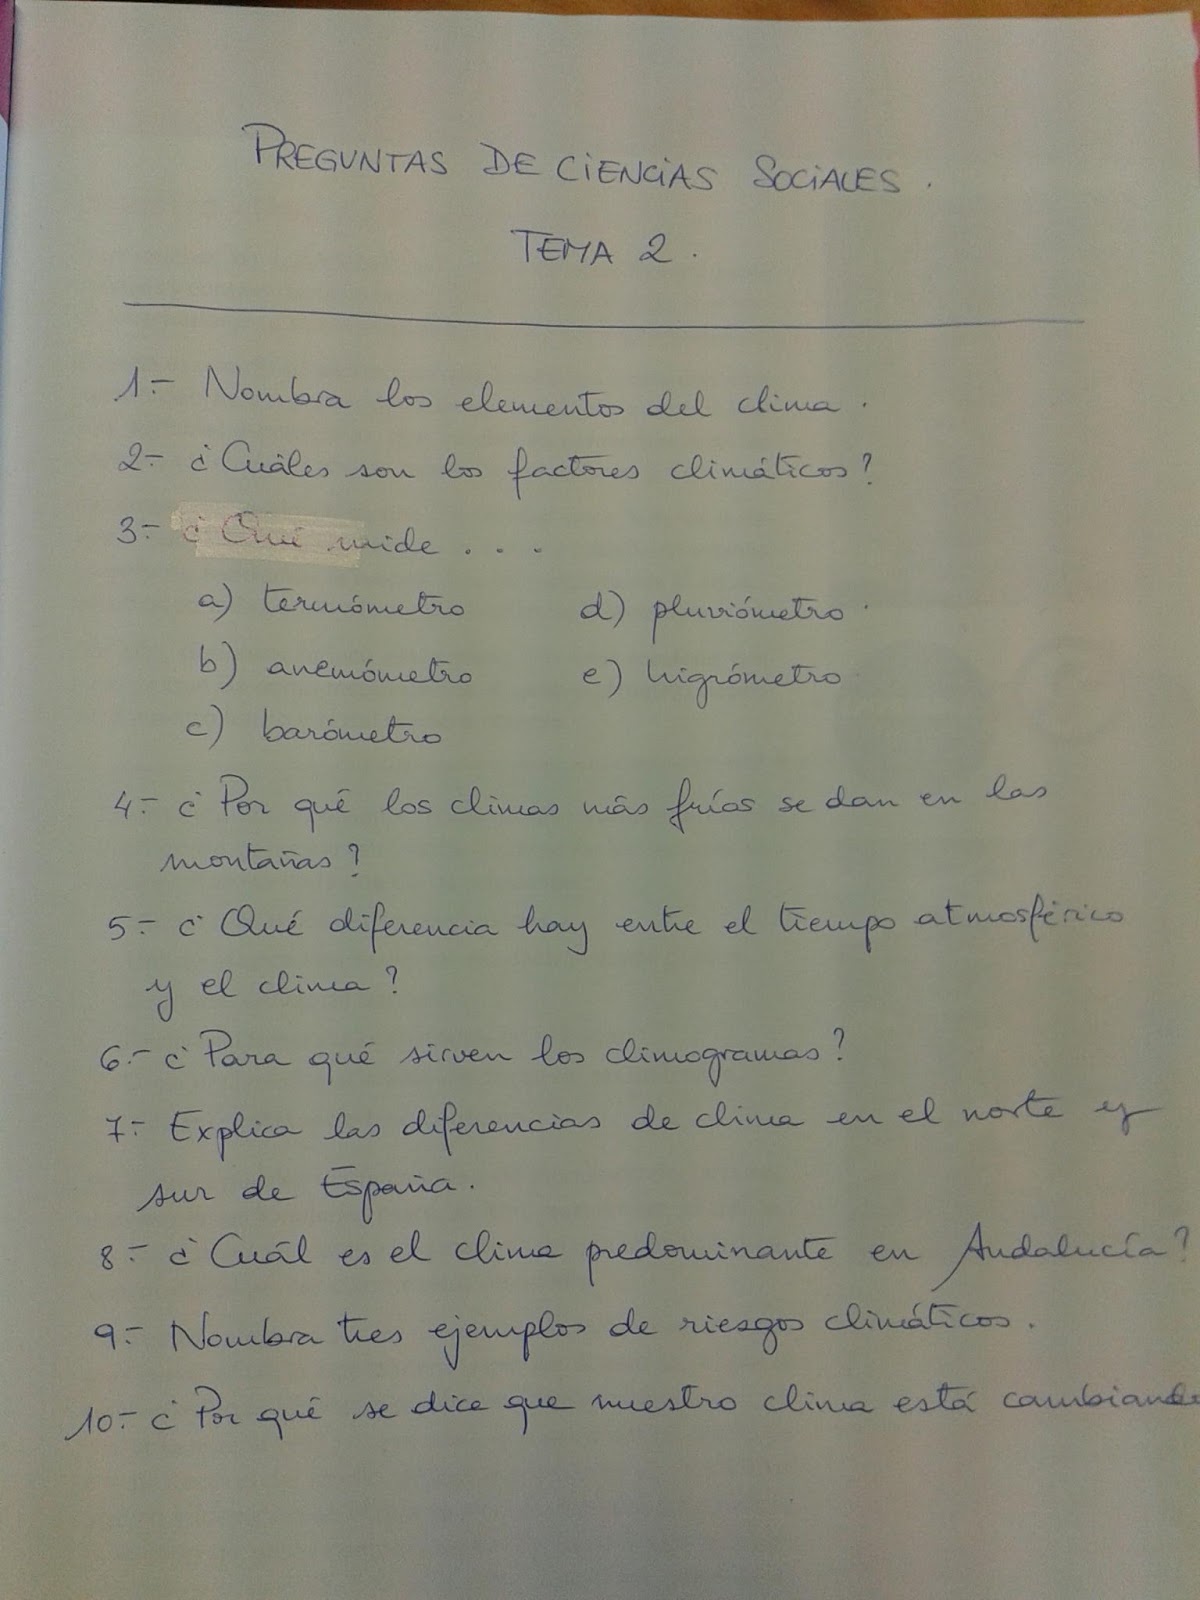 PREGUNTAS DE CIENCIAS SOCIALES.
TEMA 2.
1.- Nombra los elementos del clima.
2.- ¿Cuáles son los factores climáticos?
3.- ¿Qué mide ...
a) termómetro d) pluviómetro
b) anemómetro e) higrómetro
c) barómetro
4.- ¿Por qué los climas más fríos se dan en las
montañas?
5.- ¿Qué diferencia hay entre el tiempo atmosférico
y el clima?
6.- ¿Para qué sirven los climogramas?
7.- Explica las diferencias de clima en el norte y
sur de España.
8.- ¿Cuál es el clima predominante en Andalucía?
9.- Nombra tres ejemplos de riesgos climáticos.
10.- ¿Por qué se dice que nuestro clima está cambiando